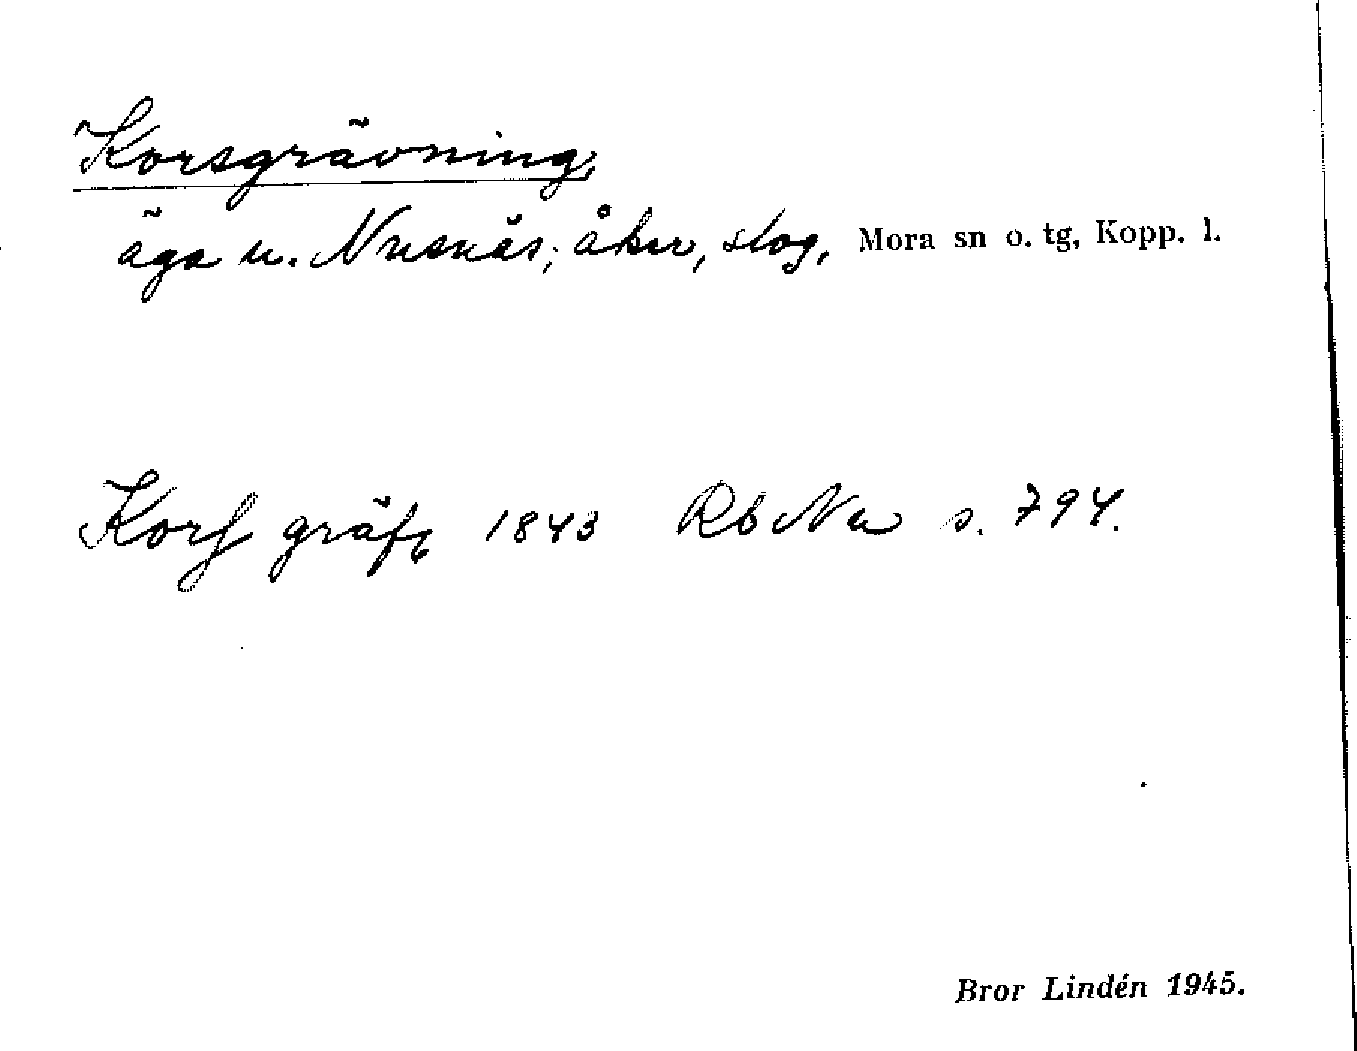 Korsgrävning,
äga u. Nusnäs; åker, slog, Mora sn o. tg, Kopp. l.
Korſ gräfg 1843 Rb Nu s. 794.
Bror Lindén 1945.